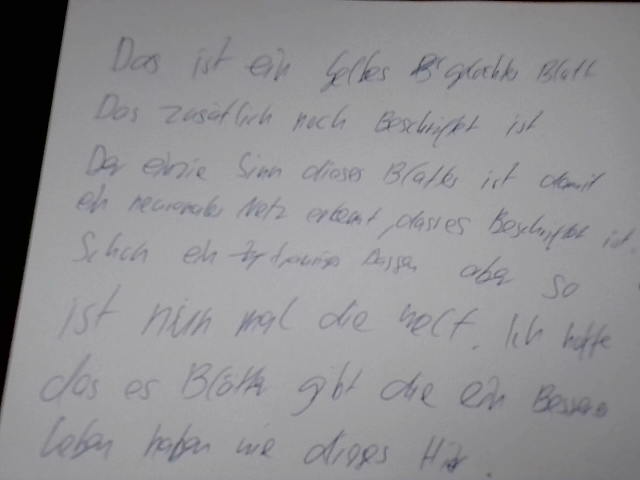 Das ist ein Gelbes Blatt
Das zusätlich noch Beschriftet ist
Der einzie Sinn dieses Blattes ist damit
ein neuronales Netz erkennt, das es Beschriftet ist.
Schon ein aber so
ist nun mal die welt. Ich hoffe
das es Blätter gibt die ein Besseres
leben haben wie dieses Hier.